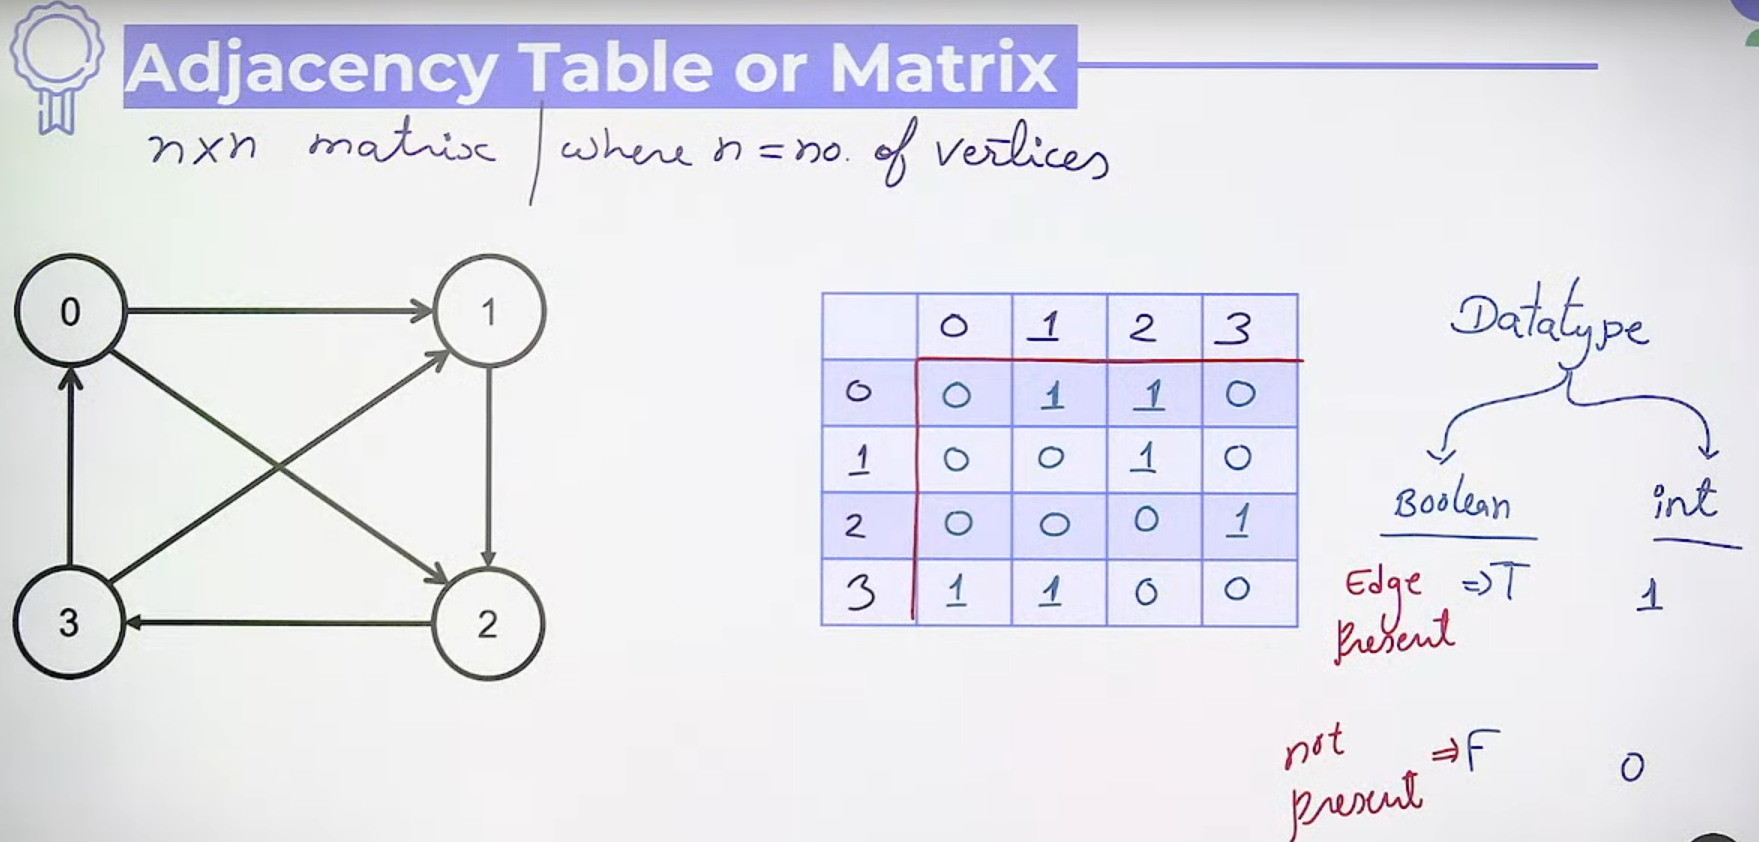 Adjacency Table or Matrix
n×n matrix | where n = no. of vertices
0
1
3
2
0 1 2 3
0 0 1 1 0
1 0 0 1 0
2 0 0 0 1
3 1 1 0 0
Datatype
Boolean int
Edge ⇒T 1
Present
not ⇒F 0
present